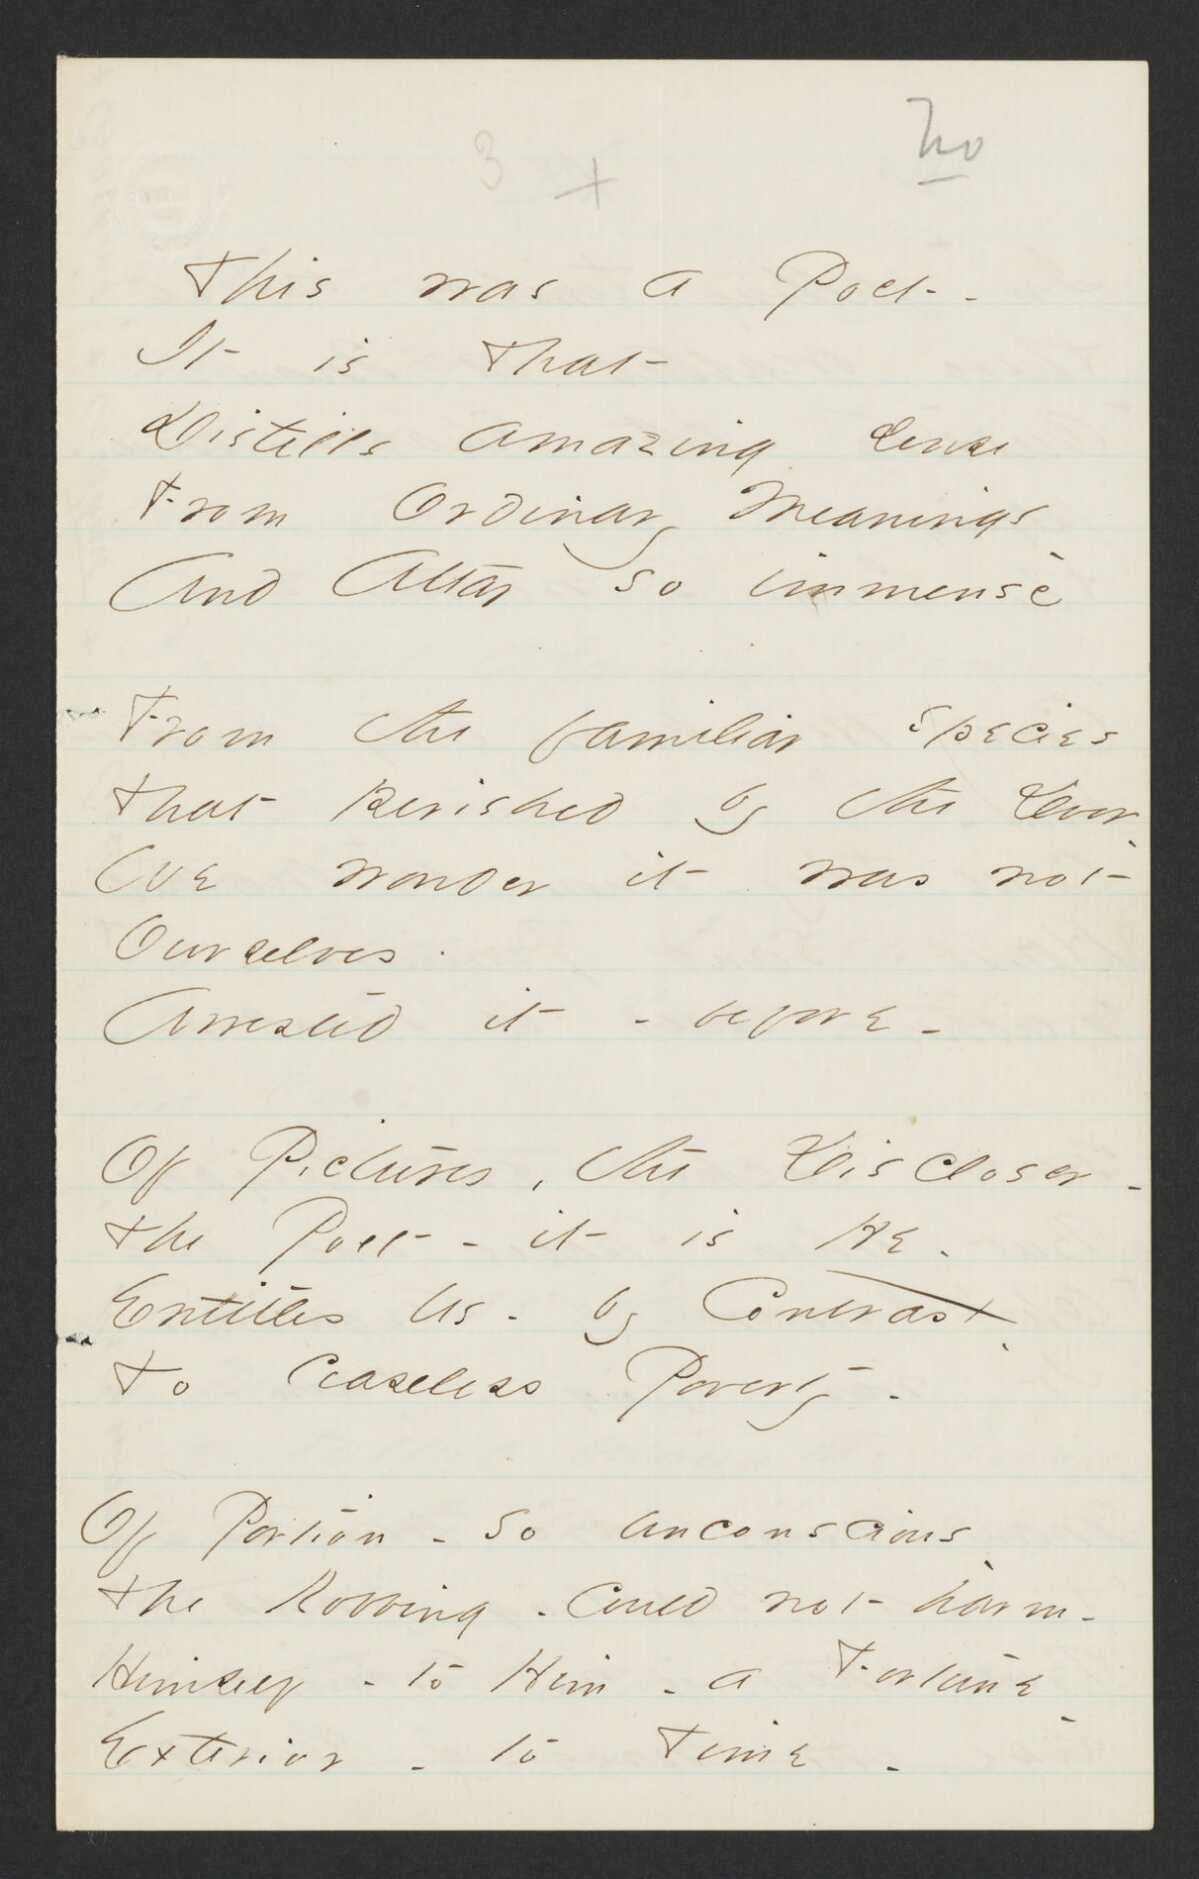 3 +
no
This was a Poet -
It is that
Distills amazing sense
From Ordinary Meanings -
And Attar so immense

From the familiar species
That perished by the Door -
We wonder it was not
Ourselves
Arrested it - before -

Of Pictures, the Discloser -
The Poet - it is He -
Entitles Us - by Contrast -
To ceaseless Poverty -

Of Portion - so unconscious -
The Robbing - could not harm -
Himself - to Him - a Fortune -
Exterior - to Time -